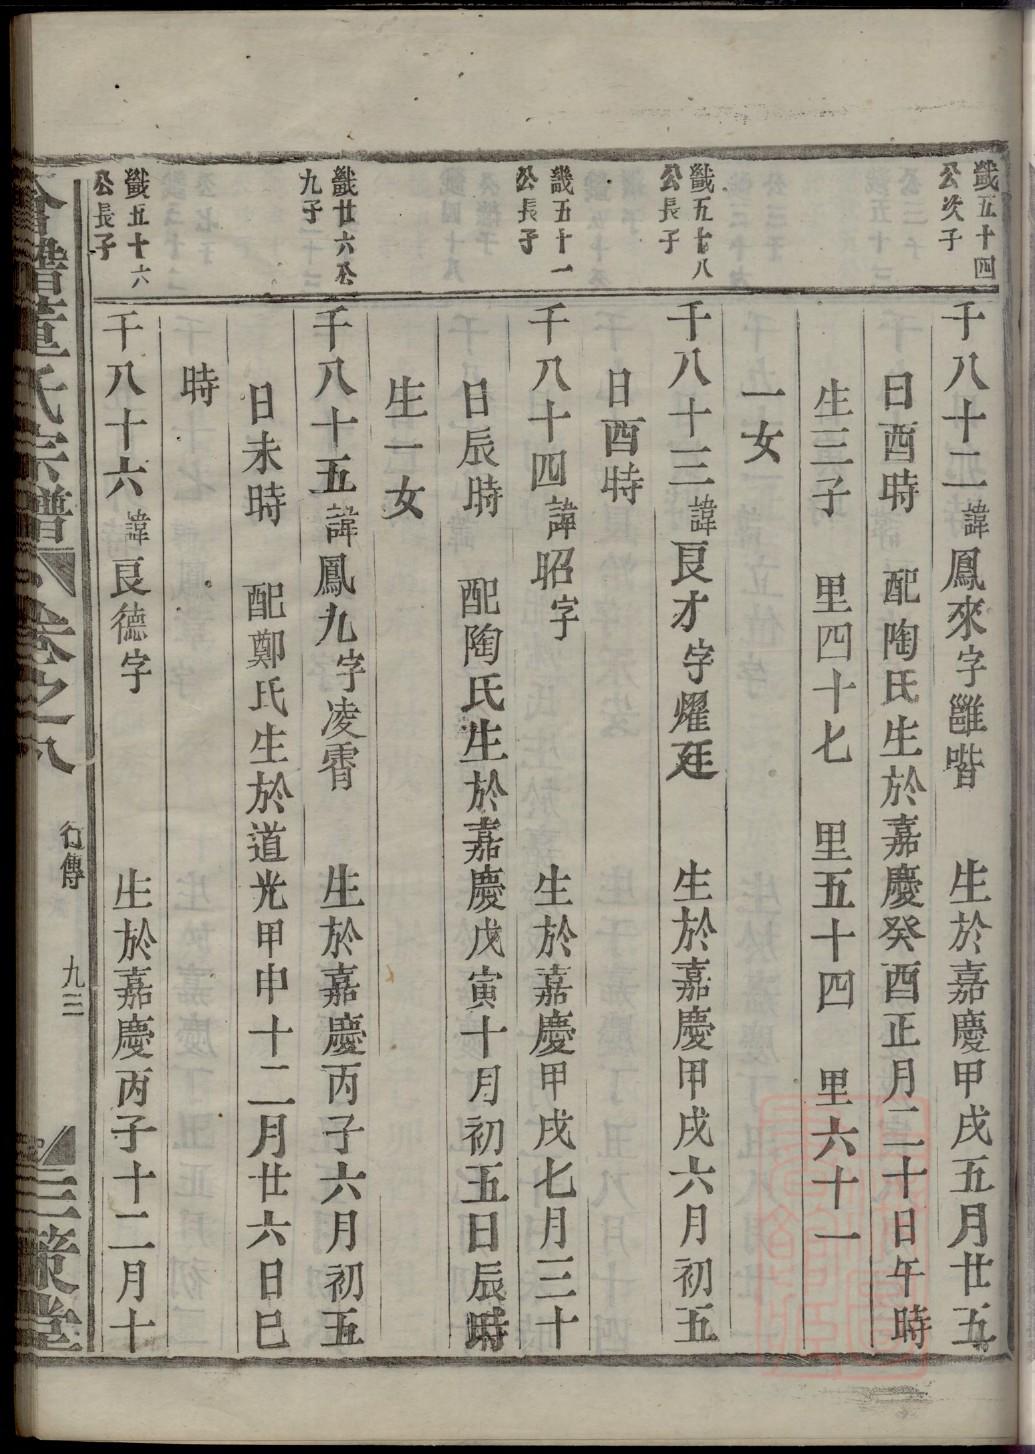 幟五十四
公次子
千八十二諱鳳來字雝喈 生於嘉慶甲戌五月廿五
日酉時 配陶氏生於嘉慶癸酉正月二十日午時
生三子 里四十七 里五十四 里六十一
一女
幟五十八
公長子
千八十三諱良才字燿廷 生於嘉慶甲戌六月初五
日酉時
幟五十一
公長子
千八十四諱昭字 生於嘉慶甲戌七月三十
日辰時 配陶氏生於嘉慶戊寅十月初五日辰時
生一女
幟廿六公
九子
千八十五諱鳳九字凌霄 生於嘉慶丙子六月初五
日未時 配鄭氏生於道光甲申十二月廿六日巳
時
幟五十六
公長子
千八十六諱良德字 生於嘉慶丙子十二月十
合譜董氏宗譜 卷之八 行傳 九三 三策堂